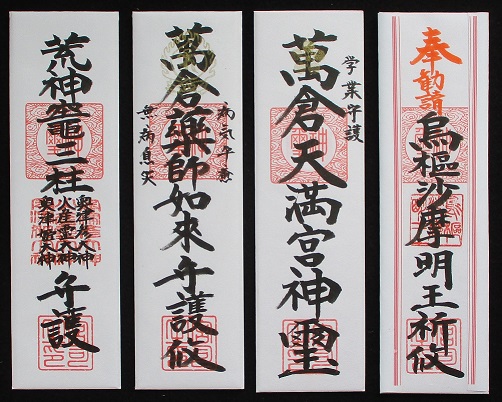 奉勧請
烏樞沙摩明王祈攸
学業守護
萬倉天満宮神璽
病気平癒
萬倉薬師如來守護攸
無病息災
荒神竈三柱
奥津彦大神
火産霊大神
奥津姫大神
守護